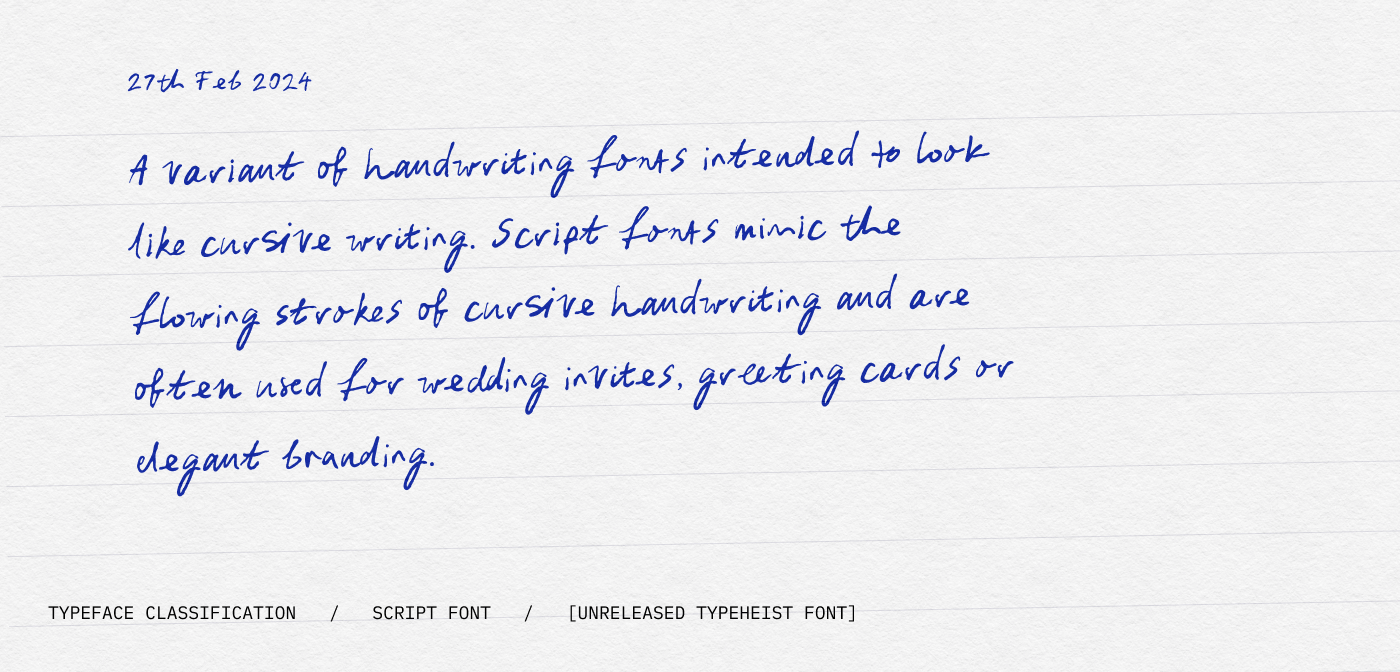 27th Feb 2024
A variant of handwriting fonts intended to look
like cursive writing. Script fonts mimic the
flowing strokes of cursive handwriting and are
often used for wedding invites, greeting cards or
elegant branding.
TYPEFACE CLASSIFICATION / SCRIPT FONT / [UNRELEASED TYPEHEIST FONT]